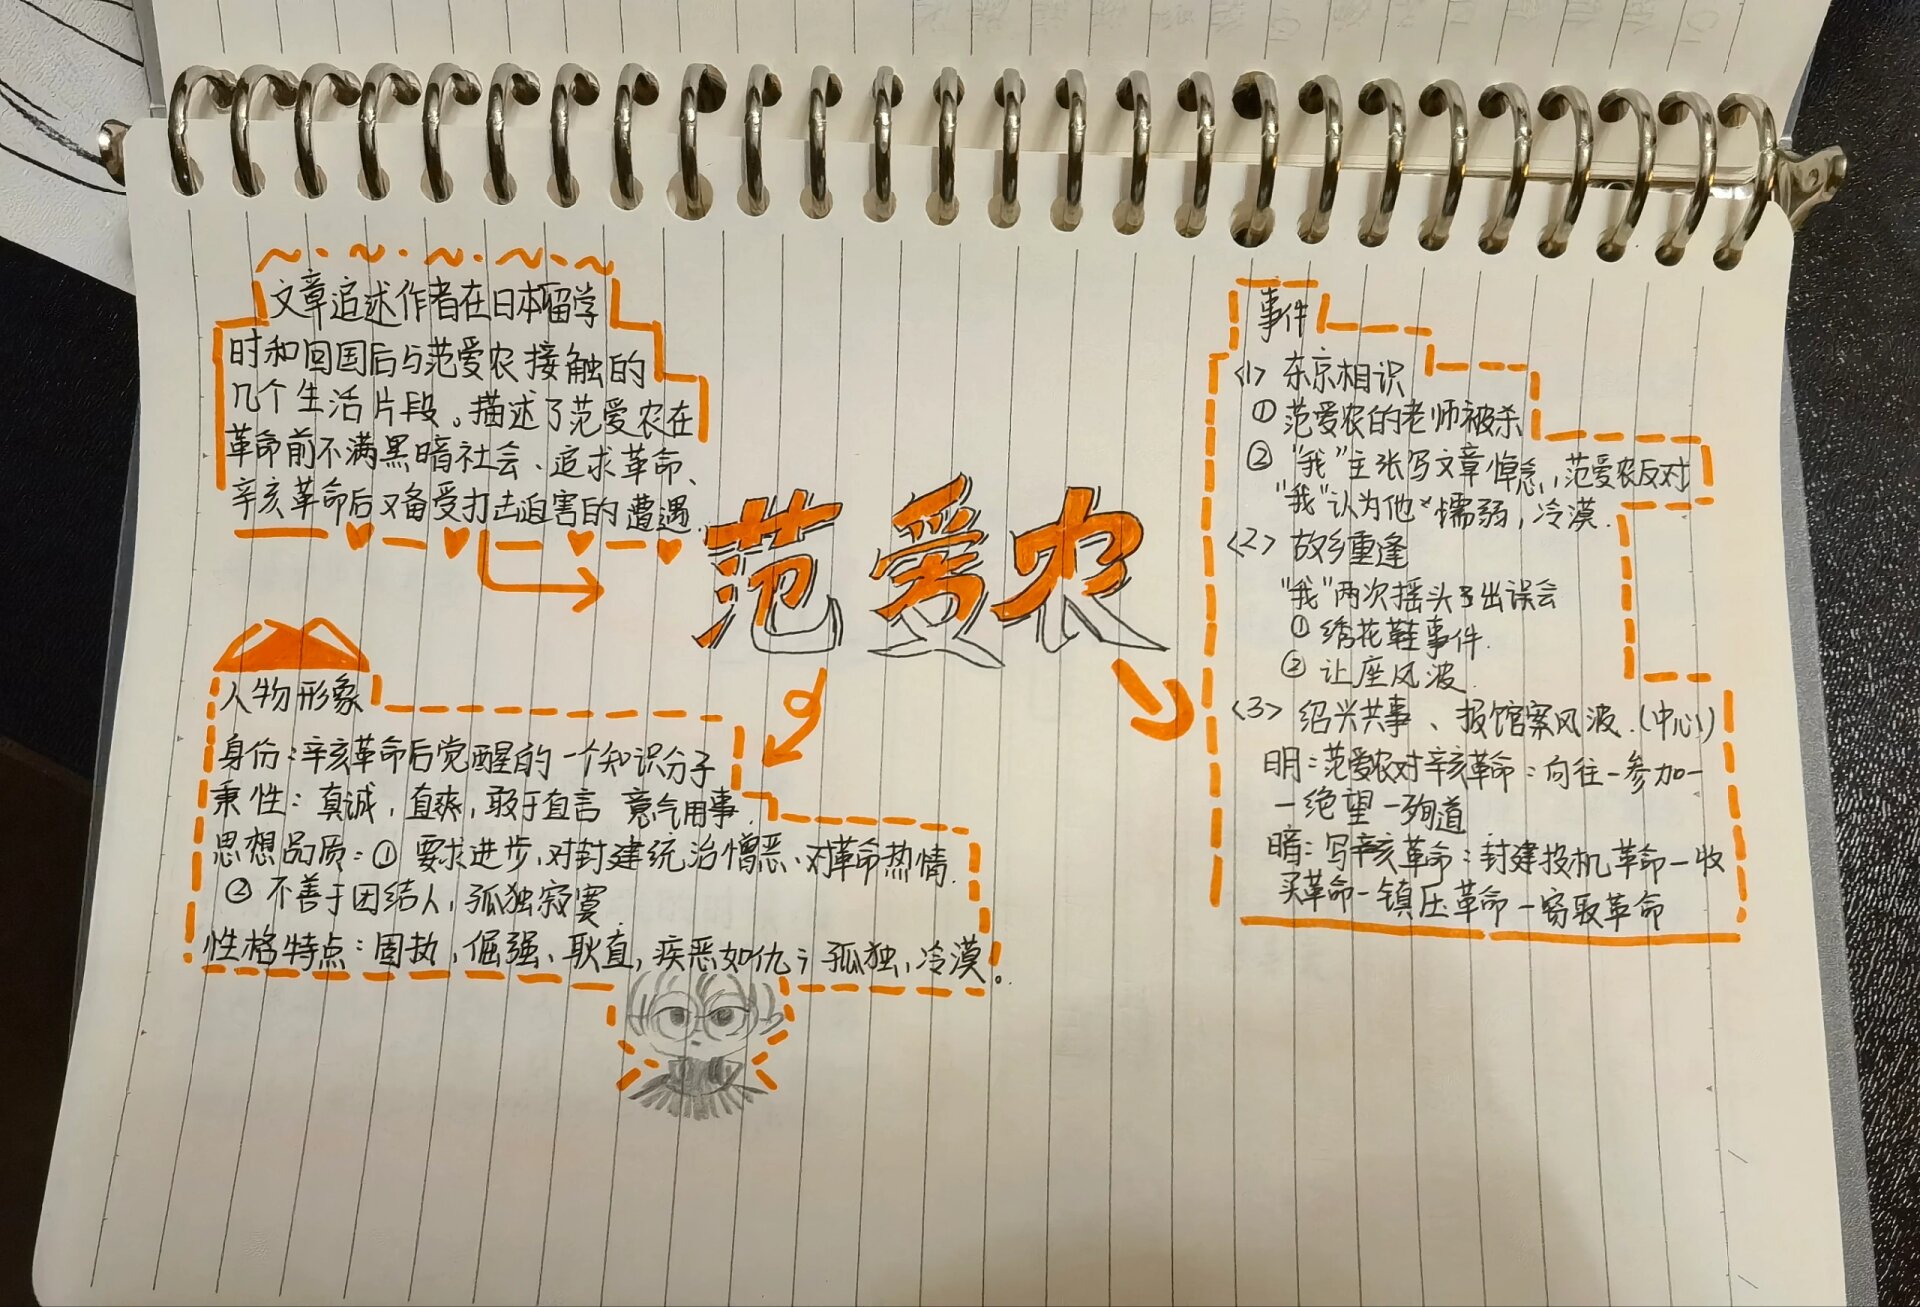 文章追述作者在日本留学
时和回国后与范爱农接触的
几个生活片段。描述了范爱农在
革命前不满黑暗社会、追求革命、
辛亥革命后又备受打击迫害的遭遇.
范爱农
人物形象
身份:辛亥革命后觉醒的一个知识分子
秉性:真诚,直爽,敢于直言 意气用事.
思想品质:① 要求进步,对封建统治憎恶、对革命热情.
② 不善于团结人,孤独寂寞.
性格特点:固执、倔强、耿直,疾恶如仇;孤独,冷漠。
事件
<1> 东京相识
① 范爱农的老师被杀
② “我”主张写文章悼念,范爱农反对
“我”认为他懦弱,冷漠.
<2> 故乡重逢
“我”两次摇头了出误会
① 绣花鞋事件.
② 让座风波.
<3> 绍兴共事、报馆案风波.(中心)
明:范爱农对辛亥革命:向往-参加-
-绝望-殉道
暗:写辛亥革命:封建投机革命-收
买革命-镇压革命-窃取革命